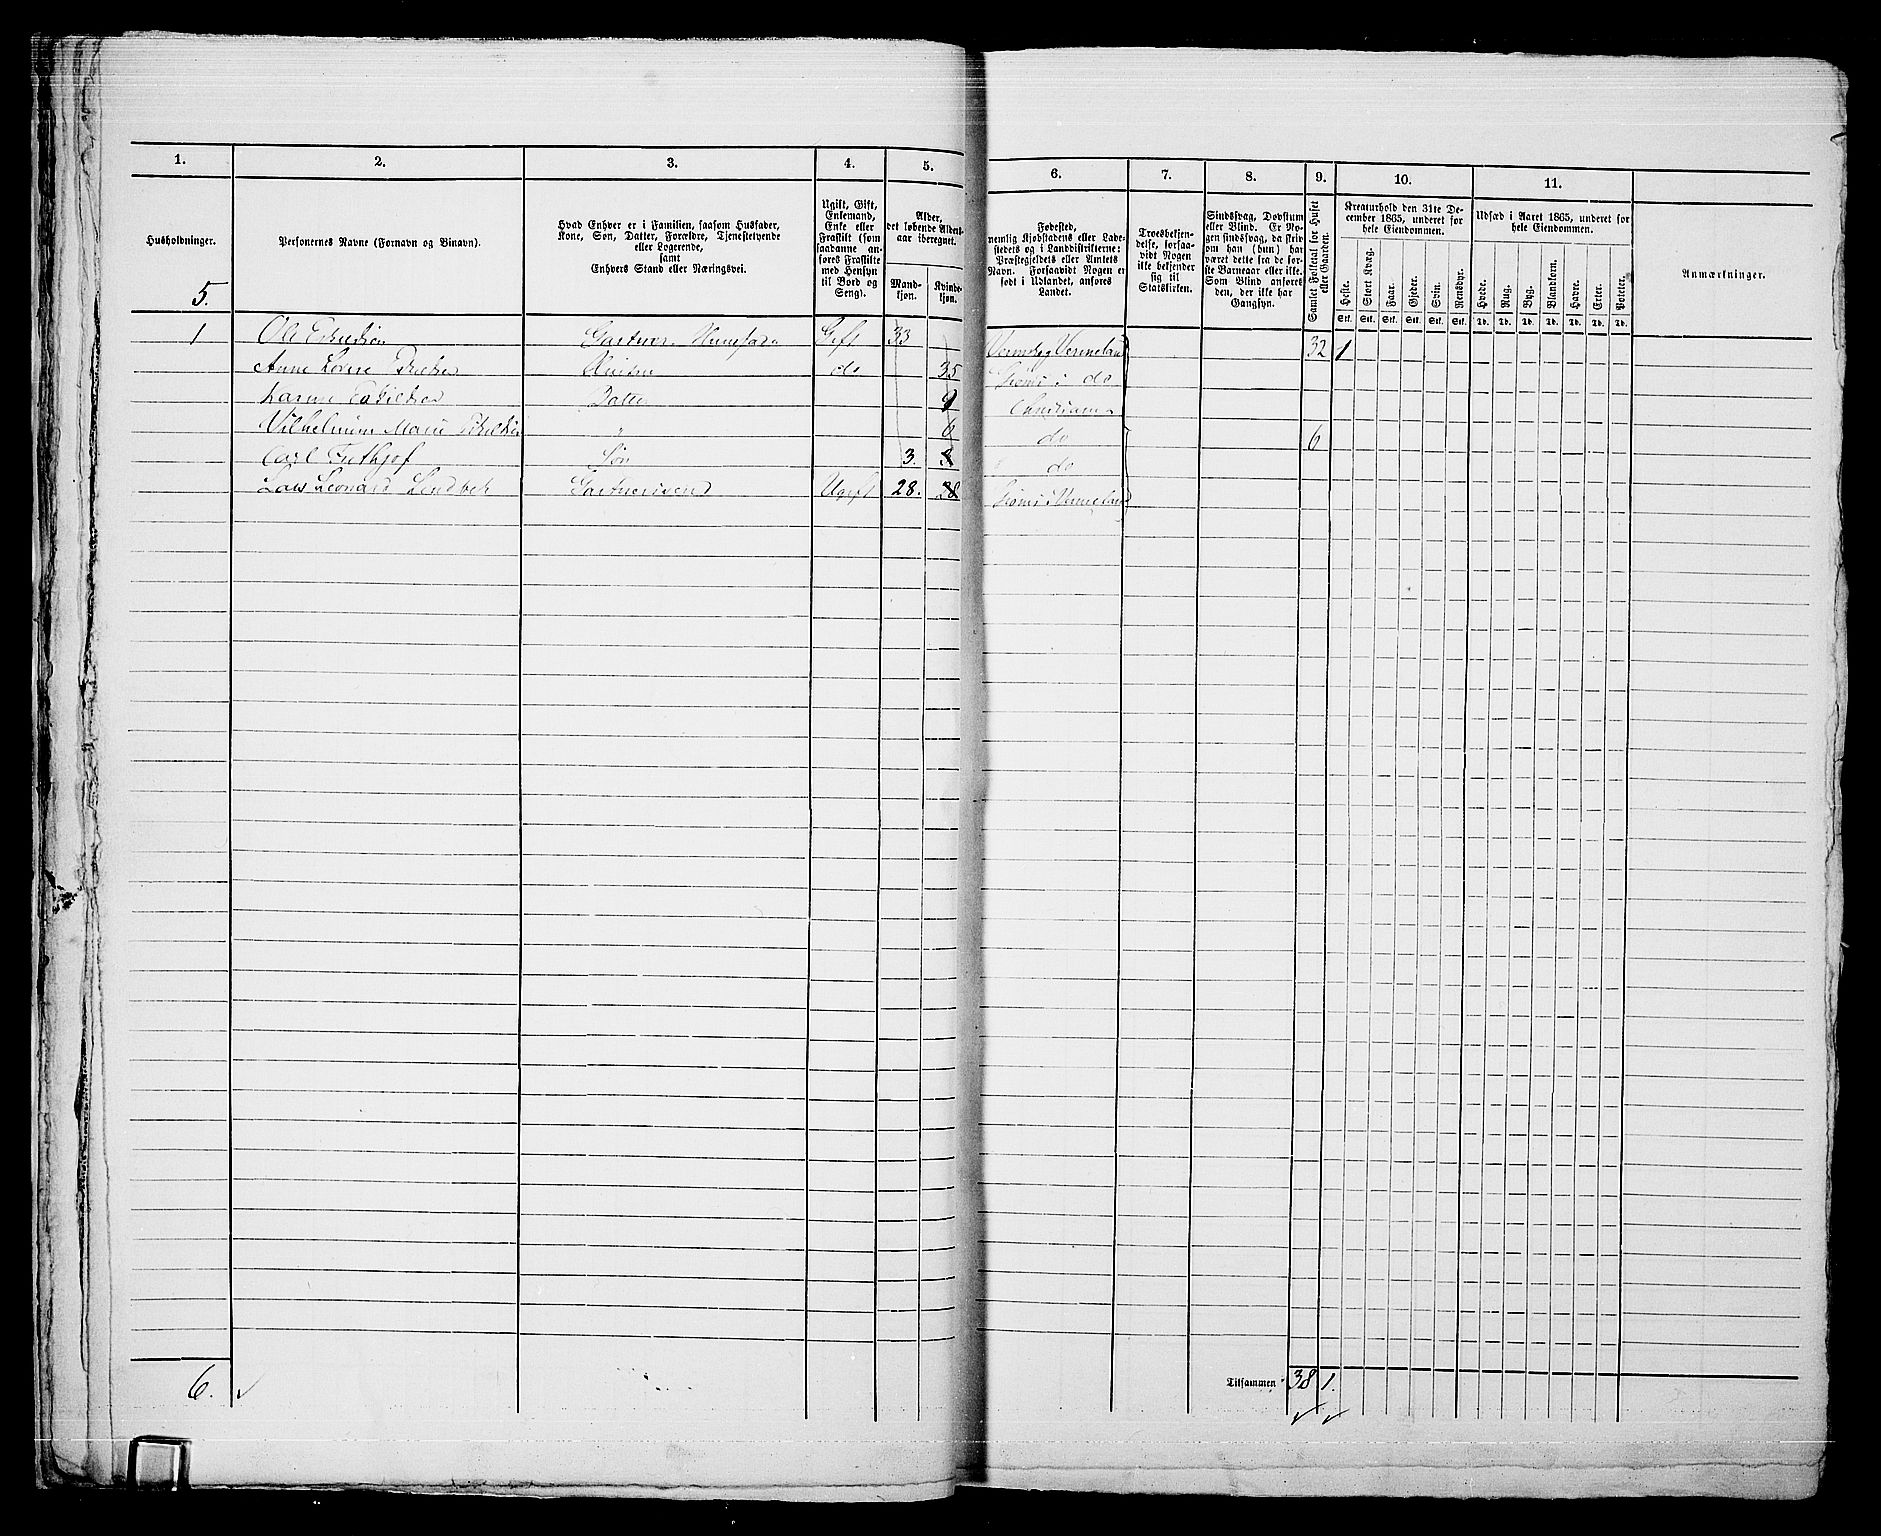 1.
2.
3.
4.
5.
6.
7.
8.
9.
10.
11.
Husholdninger.
Personernes Navne (Fornavn og Binavn).
Hvad Enhver er i Familien, saasom Husfader,
Kone, Søn, Datter, Forældre, Tjenestetyende
eller Logerende,
samt
Enhvers Stand eller Næringsvei.
Ugift, Gift,
Enkemand,
Enke eller
Fraskilt (som
saadanne an-
føres Fraskilte
med Hensyn
til Bord og
Seng).
Alder,
det løbende Alders-
aar iberegnet.
Mand-
kjøn.
Kvinde-
kjøn.
Fødested,
nemlig Kjøbstadens eller Lade-
stedets og i Landdistrikterne:
Præstegjeldets eller Amtets
Navn. Forsaavidt Nogen er
født i Udlandet, anføres
Landet.
Troesbekjen-
delse, forsaa-
vidt Nogen
ikke bekjender
sig til
Statskirken.
Sindssvag, Døvstum
eller Blind. Er No-
gen sindssvag, da skriv
om han (hun) har
været dette fra de før-
ste Barneaar eller ikke.
Som Blind anføres
den, der ikke har
Gangsyn.
Samlet Folketal for Huset
eller Gaarden.
Kreaturhold den 31te De-
cember 1865, underet for
hele Eiendommen.
Heste. Stort Kvæg. Faar. Gjeder. Svin. Rensdyr.
Stk. Stk. Stk. Stk. Stk. Stk.
Udsæd i Aaret 1865, underet for
hele Eiendommen.
Hvede. Rug. Byg. Blandkorn. Havre. Erter. Poteter.
Td. Td. Td. Td. Td. Td. Td.
Anmærkninger.
5.
1 Ole Gift 33 32 1
Anne do 35 do
Datter Christiania
Vilhelmine Marie " 6 do 6
Carl Frithjof Søn 3. 3 do
Lars Leonard Lindbek Gartnersvend Ugift 28. 28 i Vermeland
6.
Tilsammen 38 1.